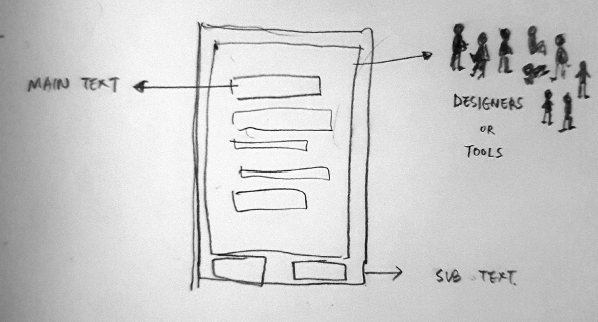 MAIN TEXT
DESIGNERS
OR
TOOLS
SUB TEXT.